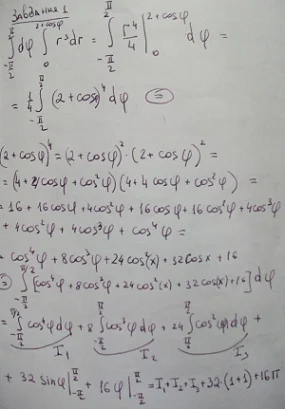 Завдання 1
∫_{-π/2}^{π/2} dφ ∫_0^{2+cosφ} r³dr = ∫_{-π/2}^{π/2} r⁴/4 |_0^{2+cosφ} dφ =
= 1/4 ∫_{-π/2}^{π/2} (2+cosφ)⁴ dφ ⊜
(2+cosφ)⁴ = (2+cosφ)² · (2+cosφ)² =
= (4+4cosφ+cos²φ)(4+4cosφ+cos²φ) =
= 16 + 16cosφ + 4cos²φ + 16cosφ + 16cos²φ + 4cos³φ
+ 4cos²φ + 4cos³φ + cos⁴φ =
= cos⁴φ + 8cos³φ + 24cos²(x) + 32cosx + 16
⊜ ∫_{-π/2}^{π/2} [cos⁴φ + 8cos³φ + 24cos²(x) + 32cos(x) + 16] dφ
= ∫_{-π/2}^{π/2} cos⁴φdφ + 8 ∫_{-π/2}^{π/2} cos³φdφ + 24 ∫_{-π/2}^{π/2} cos²(φ)dφ +
I₁ I₂ I₃
+ 32 sinφ |_{-π/2}^{π/2} + 16φ |_{-π/2}^{π/2} = I₁+I₂+I₃+32·(1+1)+16π